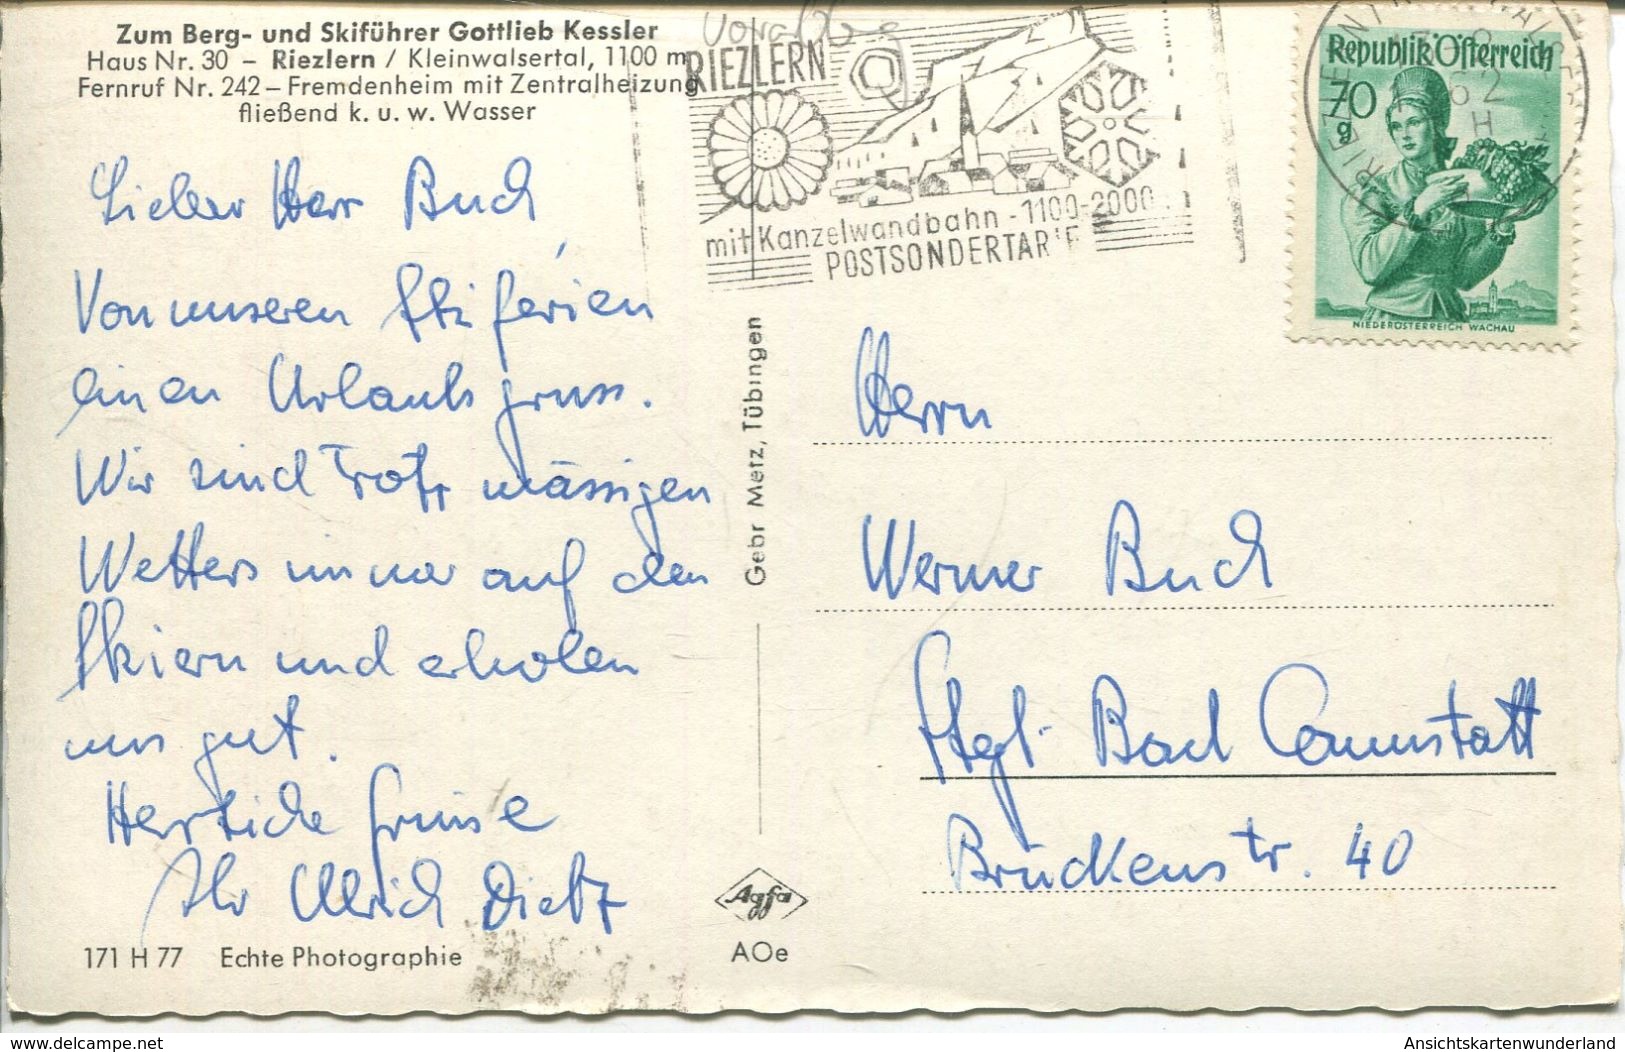 Zum Berg- und Skiführer Gottlieb Kessler
Haus Nr. 30 – Riezlern / Kleinwalsertal, 1100 m
Fernruf Nr. 242 – Fremdenheim mit Zentralheizung
fließend k. u. w. Wasser
Lieber Herr Buch,
Von unseren Skiferien
einen Urlaubsgruss.
Wir sind trotz mässigen
Wetters immer auf den
Skiern und erholen
uns gut.
Herzliche Grüsse
Ihr Ulrich Dietz
171 H 77 Echte Photographie
Gebr Metz, Tübingen
Agfa
AOe
RIEZLERN
mit Kanzelwandbahn - 1100-2000
POSTSONDERTARIF
Republik Österreich
70
g
NIEDERÖSTERREICH WACHAU
62
H
Herrn
Werner Buch
Stgt. Bad Cannstatt
Brückenstr. 40
www.delcampe.net
Ansichtskartenwunderland